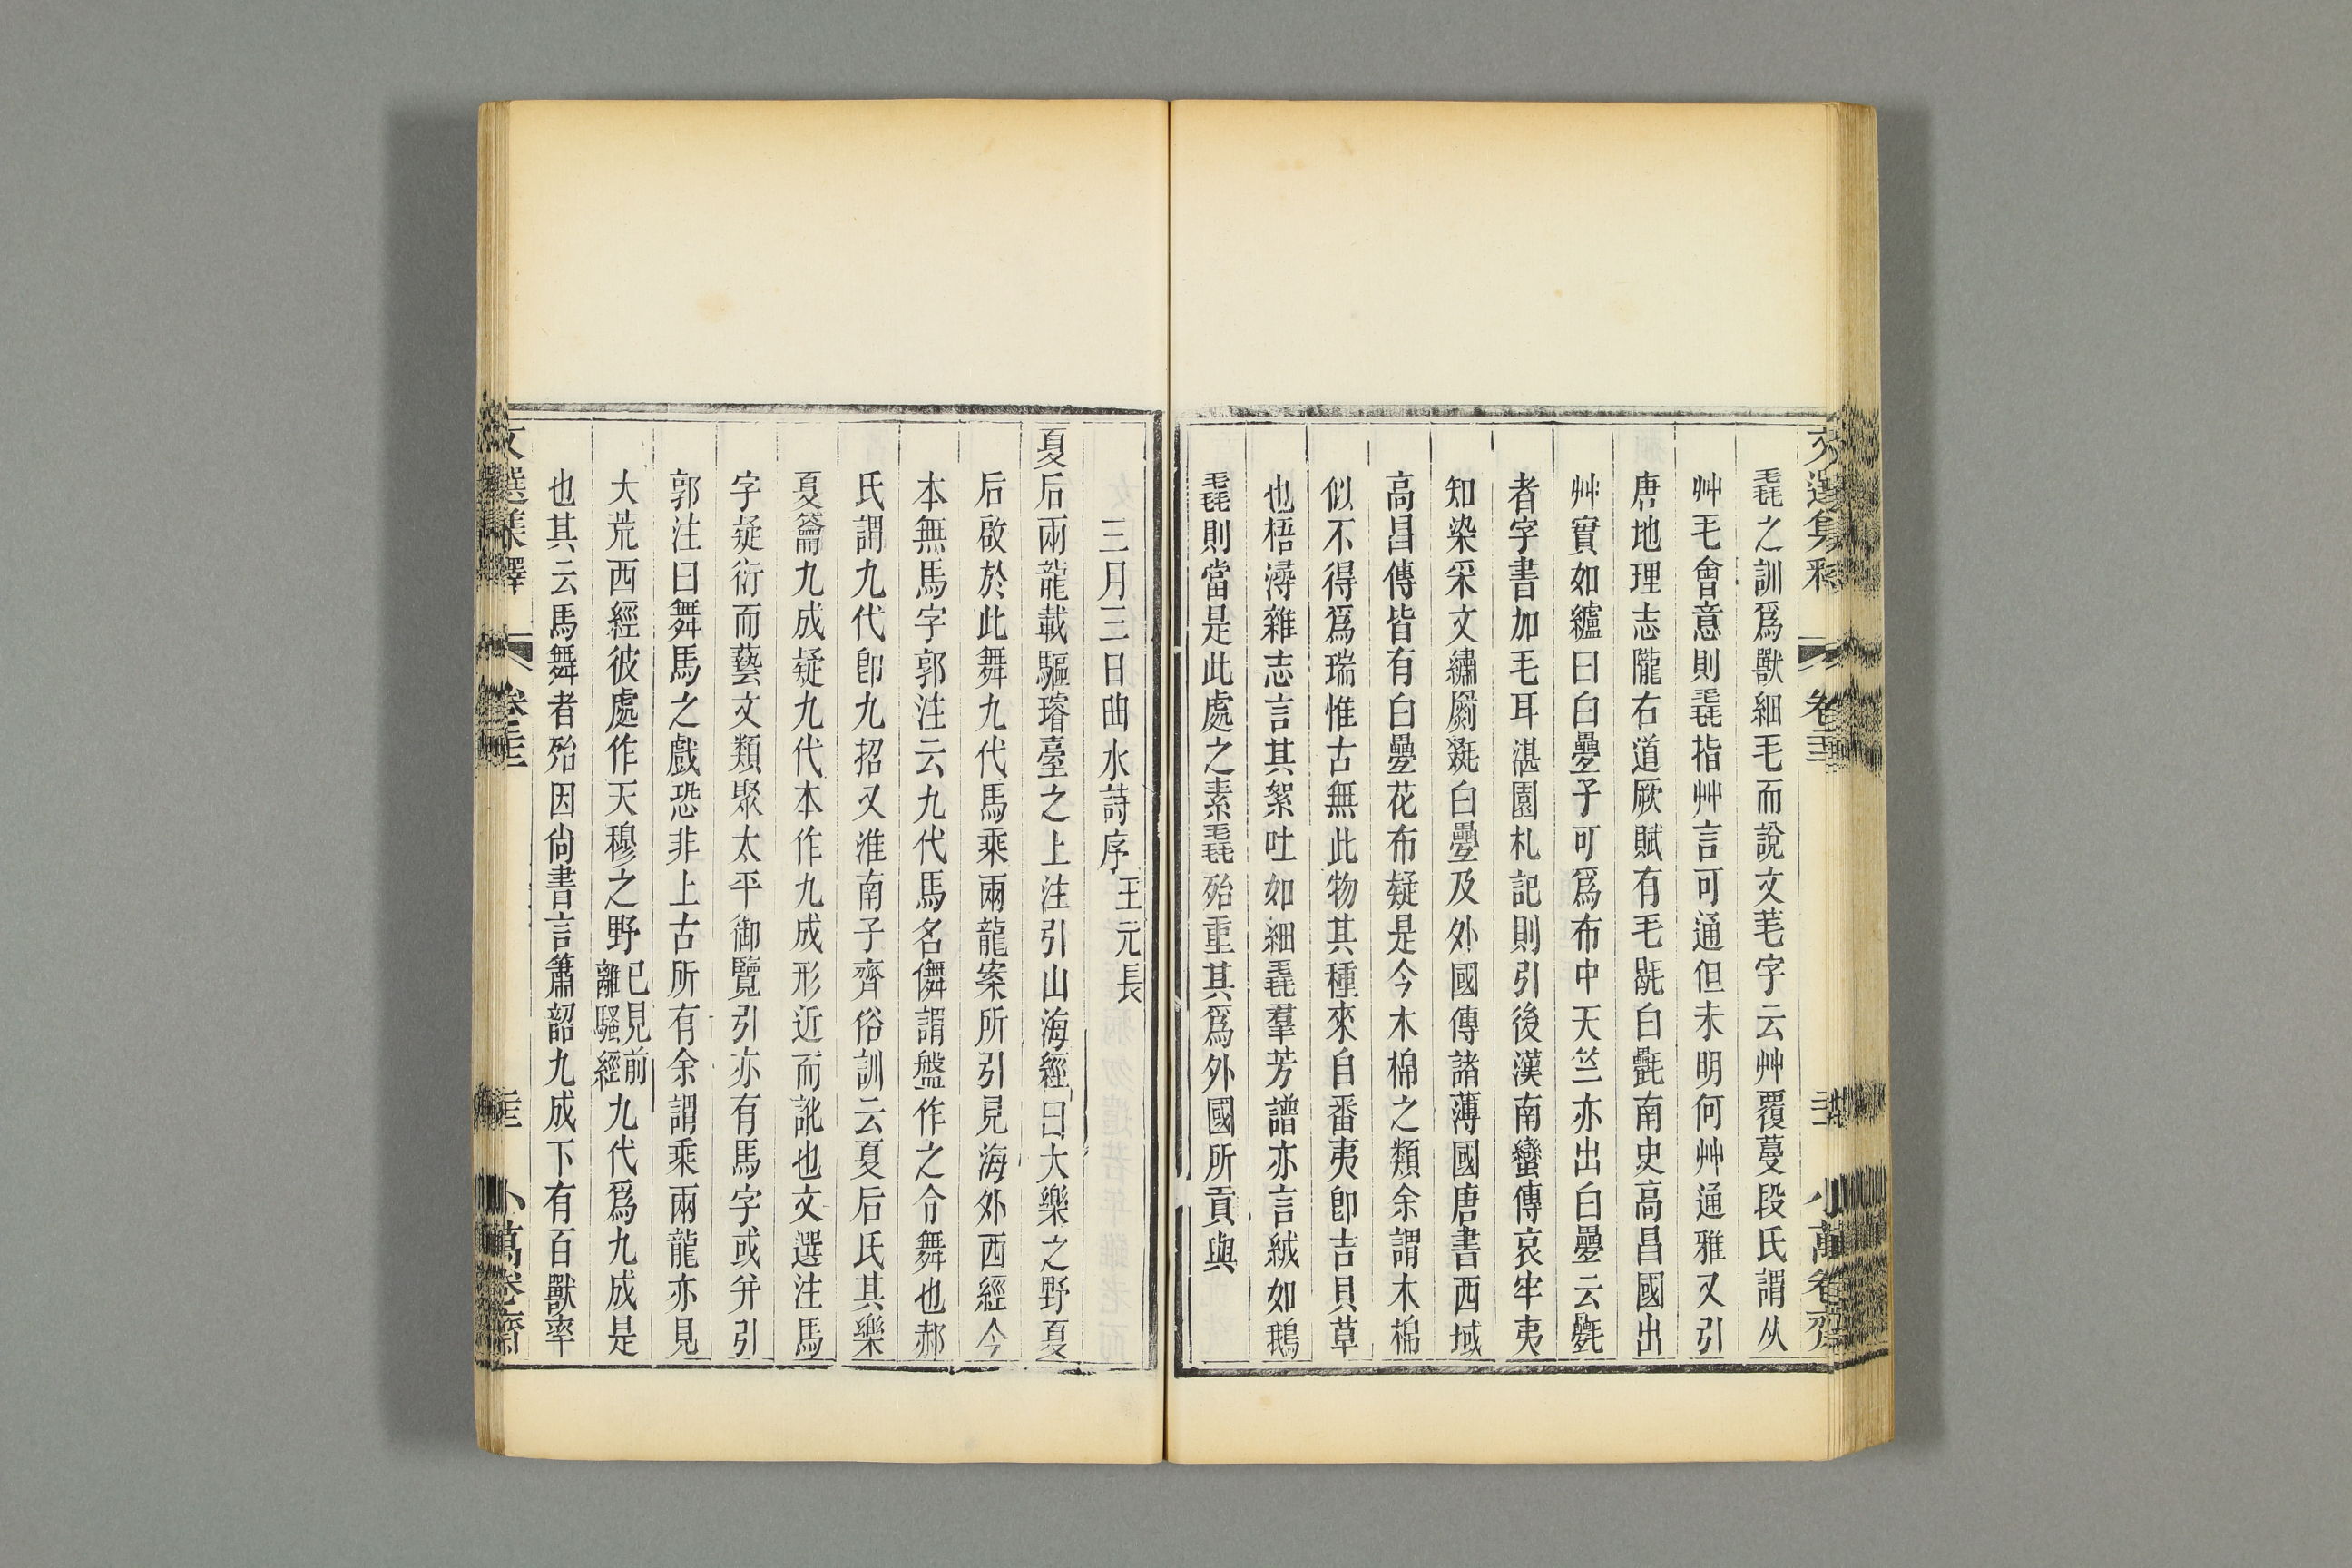 毳之訓爲獸細毛而說文芼字云艸覆蔓段氏謂从
艸毛會意則毳指艸言可通但未明何艸通雅又引
唐地理志隴右道厥賦有毛毼白㲲南史高昌國出
艸實如纑曰白疊子可爲布中天竺亦出白疊云㲲
者字書加毛耳湛園札記則引後漢南蠻傳哀牢夷
知染采文繡罽毲白疊及外國傳諸薄國唐書西域
高昌傳皆有白疊花布疑是今木棉之類余謂木棉
似不得爲瑞惟古無此物其種來自番夷卽吉貝草
也梧潯雜志言其絮吐如細毳羣芳譜亦言絨如鵝
毳則當是此處之素毳殆重其爲外國所貢與
三月三日曲水詩序 王元長
夏后兩龍載驅璿臺之上注引山海經曰大樂之野夏
后啟於此舞九代馬乘兩龍案所引見海外西經今
本無馬字郭注云九代馬名儛謂盤作之令舞也郝
氏謂九代卽九招又淮南子齊俗訓云夏后氏其樂
夏籥九成疑九代本作九成形近而訛也文選注馬
字疑衍而藝文類聚太平御覽引亦有馬字或并引
郭注曰舞馬之戲恐非上古所有余謂乘兩龍亦見
大荒西經彼處作天穆之野已見前離騷經九代爲九成是
也其云馬舞者殆因尙書言簫韶九成下有百獸率
文選集釋 卷二十 小萬卷齋